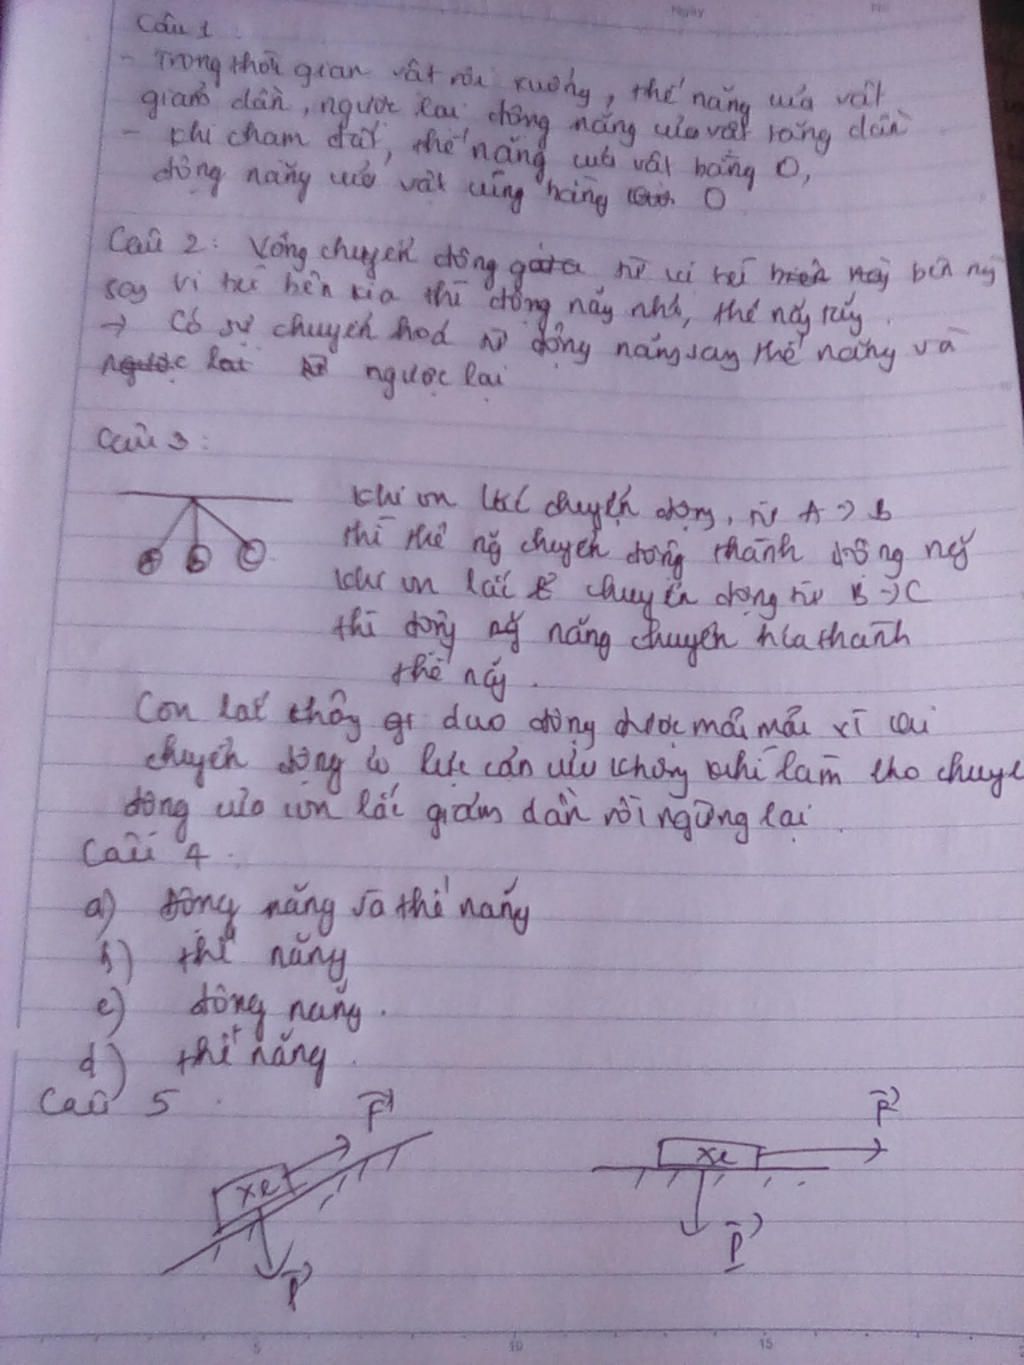 Ngày
Câu 1
- Trong thời gian vật rơi xuống, thế năng của vật
giảm dần, ngược lại động năng của vật tăng dần
- Khi chạm đất, thế năng của vật bằng 0,
động năng của vật cũng bằng 0
Câu 2: Võng chuyển động từ vị trí bên nỳ
say vị trí bên kia thì động năng nhỏ, thế năng
→ Có sự chuyển hoá từ động năng say thế năng và
ngược lại
Câu 3:
Khi con lắc chuyển động, từ A → B
A B C
thì thế ng chuyển động thành động ng
khi con lắc chuyển động từ B → C
thì động năng chuyển hóa thành
thế năng.
Con lắc thấy dao động được mãi mãi vì
chuyển động có lực cản của không khí làm cho chuyể
động của con lắc giảm dần rồi ngừng lại.
Câu 4.
a) động năng và thế năng
b) thế năng
c) động năng.
d) thế năng.
Câu 5.
F F
xe xe
P P
5 10 15